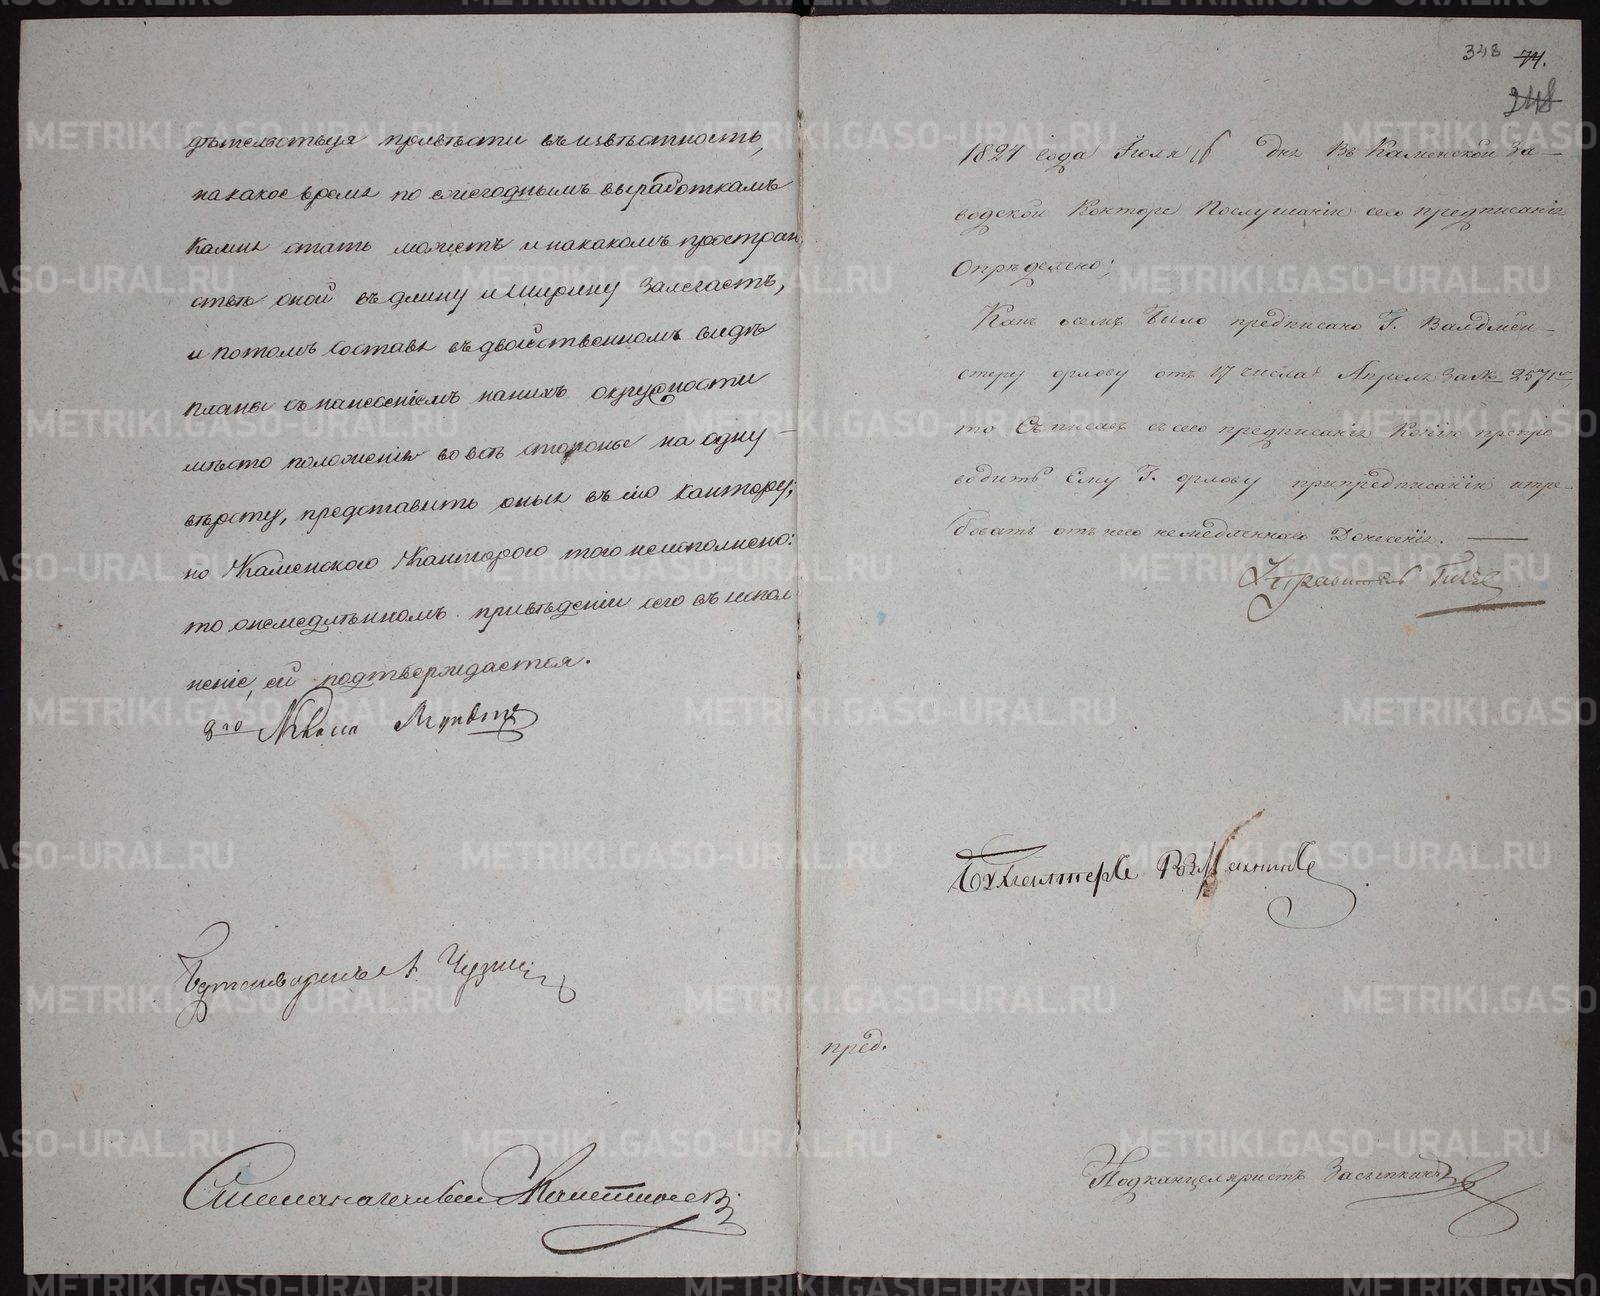 дѣтельствуя привѣсти въ извѣстность,
на какое время по ежегоднымъ выработкамъ
камня стать можетъ и на какомъ простран
ствѣ оной въ длину и ширину залегаетъ,
и потомъ составя въ двойственномъ видѣ
планы съ нанесеніемъ на нихъ окружности
мѣсто положенія во всѣ стороны на одну
вѣрсту, представить оныя въ сію кантору;
но Каменскою Канторою того неисполнено:
то о немедлѣнномъ привѣденіи сего въ испол
неніе, ей подтверждается.
Чузи
348 74.
248
1827 года Іюля дня Въ Каменской За-
водской Конторе По слушаніи сего предписанія
Опрѣделено;
Какъ осемъ было предписано Г. Валдмей-
стеру орлову отъ 17 числа Апреля за № 2571м,
то Съписавъ съ сего предписанія Копію препро
водить Ему Г. орлову при предписаніи и тре-
бовать отъ него немедленнаго Донесенія.
Управитель
Бухгалтеръ
пред.
Подканцеляристъ Засыпкинъ
METRIKI.GASO-URAL.RU